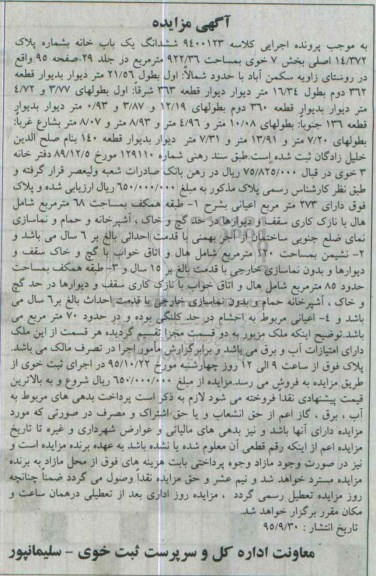 آگهی مزایده
به موجب پرونده اجرایی کلاسه ۹۴۰۰۱۲۳ ششدانگ یک باب خانه بشماره پلاک
۱۴/۳۷۲ اصلی بخش ۷ خوی بمساحت ۹۲۲/۳۶ مترمربع در جلد ۲۹-صفحه ۹۵ واقع
در روستای زاویه سکمن آباد با حدود شمالاً: اول بطول ۲۱/۵۶ متر دیوار بدیوار قطعه
۳۶۲ دوم بطول ۱۶/۳۴ متر دیوار بدیوار قطعه ۳۶۳ شرقاً: اول بطولهای ۳/۷۷ و ۴/۷۲
متر دیوار بدیوار قطعه ۳۶۰ دوم بطولهای ۱۲/۱۹ و ۳/۸۷ و ۰/۹۳ متر دیوار بدیوار
قطعه ۱۳۶ جنوباً: بطولهای ۱۰/۰۸ متر و ۴/۹۶ متر و ۸/۹۳ متر و ۸/۰۷ متر بشارع غرباً:
بطولهای ۷/۲۰ متر و ۱۳/۹۱ متر و ۷/۳۱ متر دیوار بدیوار قطعه ۱۴۰ بنام صلح الدین
خلیل زادگان ثبت شده است.طبق سند رهنی شماره ۱۲۹۱۱۰ مورخ ۸۹/۱۲/۵ دفتر خانه
۳ خوی در قبال ۷۵/۸۲۵/۰۰۰ ریال در رهن بانک صادرات شعبه ولیعصر قرار گرفته و
طبق نظر کارشناس رسمی پلاک مذکور به مبلغ ۶۵۰/۰۰۰/۰۰۰ ریال ارزیابی شده و پلاک
فوق دارای ۲۷۳ متر مربع اعیانی بشرح ۱- طبقه همکف بمساحت ۶۸ مترمربع شامل
هال با نازک کاری سقف و دیوارها در حد گچ و خاک ، آشپزخانه و حمام و نماسازی
نمای ضلع جنوبی ساختمان از آجر بهمنی با قدمت احداثی بالغ بر ۶ سال می باشد و
۲- نشیمن بمساحت ۱۲۰ مترمربع شامل هال و اتاق خواب با گچ و خاک سقف و
دیوارها و بدون نماسازی خارجی با قدمت بالغ بر ۱۵ سال و ۳-طبقه همکف بمساحت
حدود ۸۵ مترمربع شامل هال و اتاق خواب با نازک کاری سقف و دیوارها در حد گچ
و خاک ، آشپزخانه حمام و بدون نماسازی خارجی با قدمت احداث بالغ بر ۶ سال می
باشد و ۴- اعیانی مربوط به احشام در حد کلنگی بوده و در حدود ۷۰ متر مربع می
باشد.توضیح اینکه ملک مزبور به دو قسمت مجزا تقسیم گردیده هر قسمت از این ملک
دارای امتیازات آب و برق می باشد و برابرگزارش مأمور اجرا در تصرف مالک می باشد.
پلاک فوق از ساعت ۹ الی ۱۲ روز چهارشنبه مورخ ۹۵/۱۰/۲۲ در اجرای ثبت خوی از
طریق مزایده به فروش می رسد.مزایده از مبلغ ۶۵۰/۰۰۰/۰۰۰ ریال شروع و به بالاترین
قیمت پیشنهادی نقداً فروخته می شود لازم به ذکر است پرداخت بدهی های مربوط به
آب ، برق ، گاز اعم از حق انشعاب و یا حق اشتراک و مصرف در صورتی که مورد
مزایده دارای آنها باشد و نیز بدهی های مالیاتی و عوارض شهرداری و غیره تا تاریخ
مزایده اعم از اینکه رقم قطعی آن معلوم شده یا نشده باشد به عهده برنده مزایده است و
نیز در صورت وجود مازاد وجوه پرداختی بابت هزینه های فوق از محل مازاد به برنده
مزایده مسترد خواهد شد و نیم عشر و حق مزایده نقداً وصول می گردد ضمناً چنانچه
روز مزایده تعطیل رسمی گردد ، مزایده روز اداری بعد از تعطیلی درهمان ساعت و
مکان مقرر برگزار خواهد شد.
تاریخ انتشار : ۹۵/۹/۳۰
معاونت اداره کل و سرپرست ثبت خوی - سلیمانپور